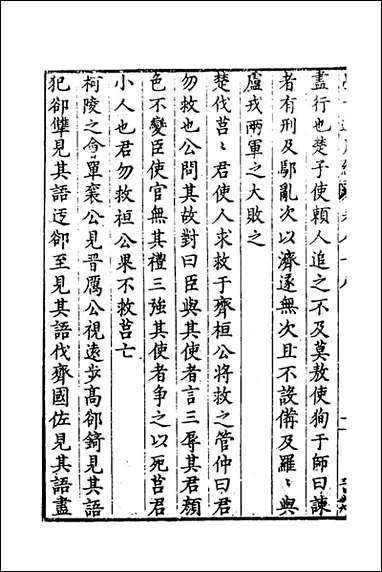 盡行也楚子使賴人追之不及莫敖使狥于師曰諫
者有刑及鄢亂次以濟遂無次且不設備及羅〻與
盧戎兩軍之大敗之
楚伐莒〻君使人求救于齊桓公將救之管仲曰君
勿救也公問其故對曰臣與其使者言三辱其君顏
色不變臣使官無其禮三強其使者爭之以死莒君
小人也君勿救桓公果不救莒亡
柯陵之會單襄公見晋厲公視遠步高郤錡見其語
犯郤犨見其語迃郤至見其語伐齊國佐見其語盡